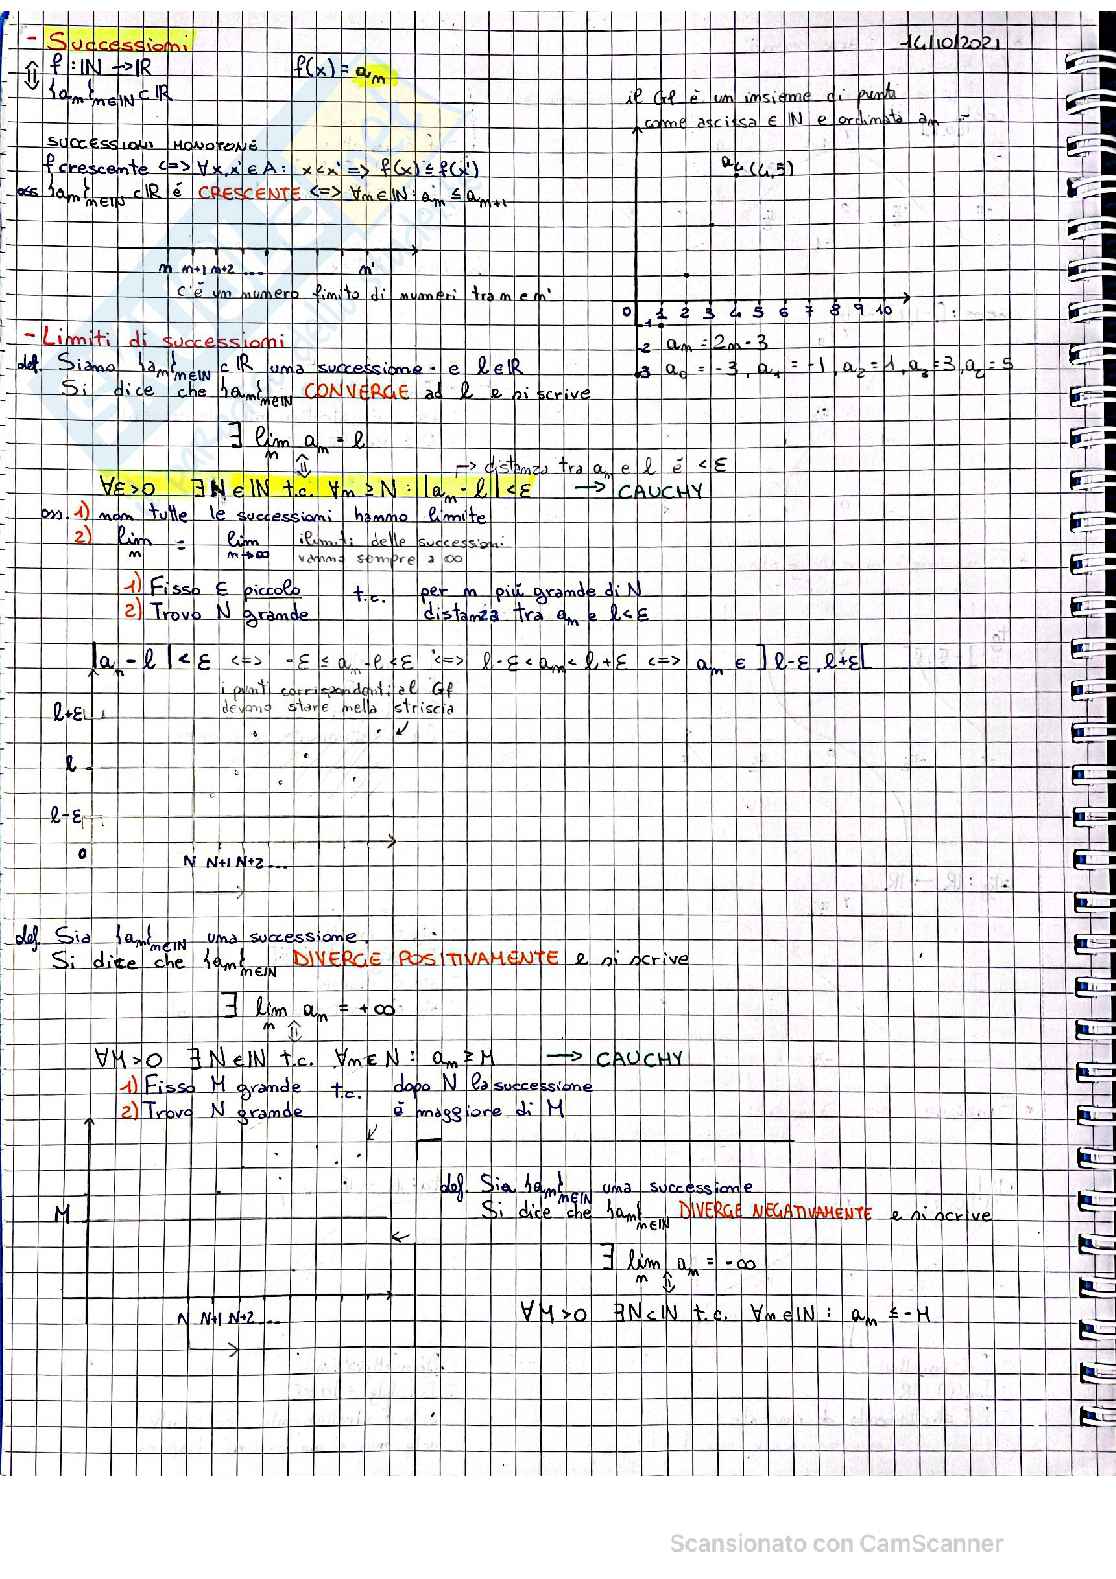 - Successioni
14/10/2021
f : IN → IR
f(x) = am
⇕
{am}m∈IN ⊂ IR
il Gf è un insieme di punti
come ascissa ∈ IN e ordinata am
SUCCESSIONI MONOTONE
f crescente <=> ∀x,x'∈A : x<x' => f(x) ≤ f(x')
a4 (4,5)
oss {am}m∈IN ⊂ IR é CRESCENTE <=> ∀m∈IN : am ≤ am+1
m m+1 m+2 ... m'
c'è un numero finito di numeri tra m e m'
0 1 2 3 4 5 6 7 8 9 10
-1
-2
-3
am = 2m - 3
a0 = -3, a1 = -1, a2 = 1, a3 = 3, a4 = 5
- Limiti di successioni
def. Siano {am}m∈IN ⊂ IR una successione e l∈IR
Si dice che {am}m∈IN CONVERGE ad l e si scrive
∃ lim m am = l
⇕
→ distanza tra am e l é < ε
∀ε>0 ∃N∈IN t.c. ∀m ≥ N : |am - l| < ε → CAUCHY
oss. 1) non tutte le successioni hanno limite
2) lim m = lim m→∞ i limiti delle successioni
vanno sempre a ∞
1) Fisso ε piccolo t.c. per m piú grande di N
2) Trovo N grande distanza tra am e l < ε
|an - l| < ε <=> -ε ≤ am - l < ε <=> l-ε < am < l+ε <=> am ∈ ]l-ε, l+ε[
i punti corrispondenti al Gf
devono stare nella striscia
l+ε
l
l-ε
0
N N+1 N+2 ...
def. Sia {am}m∈IN una successione.
Si dice che {am}m∈IN DIVERGE POSITIVAMENTE e si scrive
∃ lim m am = +∞
⇕
∀M>0 ∃N∈IN t.c. ∀m∈N : am ≥ M → CAUCHY
1) Fisso M grande t.c. dopo N la successione
2) Trovo N grande è maggiore di M
M
N N+1 N+2 ...
def. Sia {am}m∈IN una successione
Si dice che {am}m∈IN DIVERGE NEGATIVAMENTE e si scrive
∃ lim m am = -∞
⇕
∀M>0 ∃N⊂IN t.c. ∀m∈IN : am ≤ -M
Scansionato con CamScanner